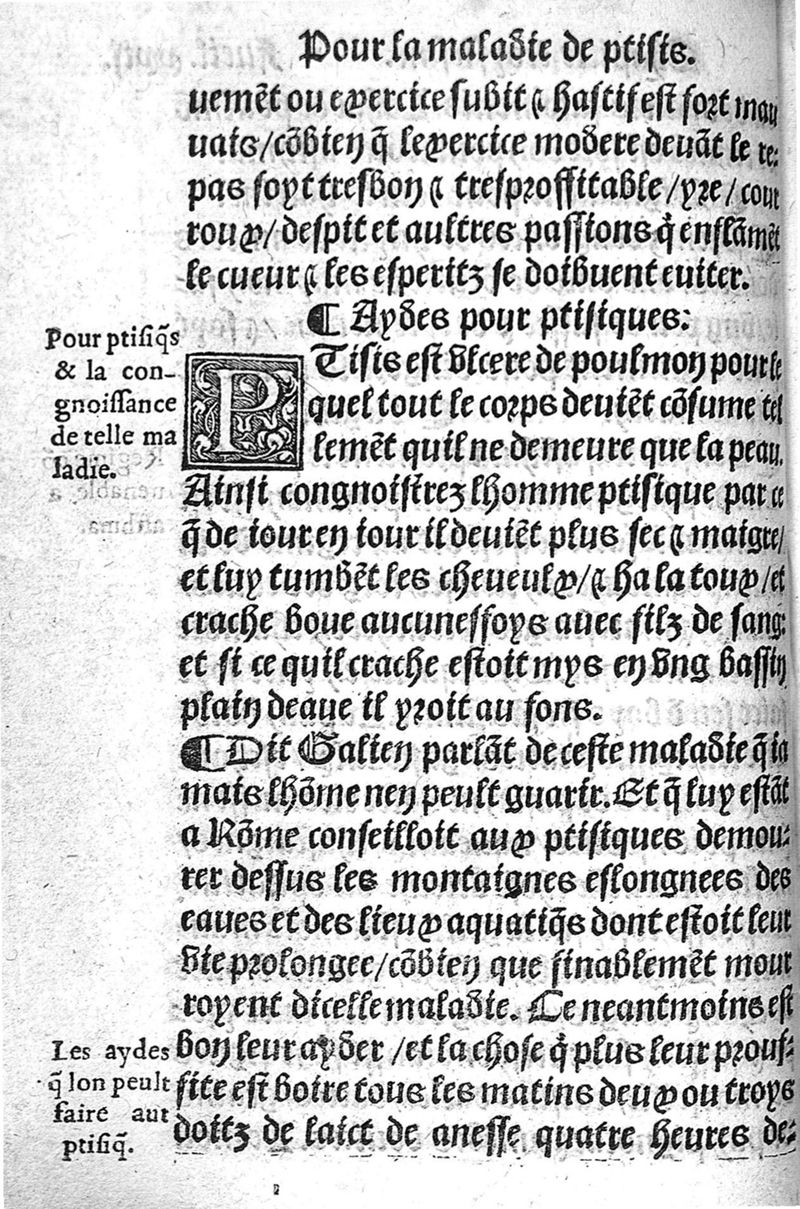 Pour la maladie de ptisis.
uemẽt ou exercice subit ⁊ hastif est fort mau
uais/cõbien q̃ lexercice modere deuãt le re:
pas soyt tresbon ⁊ tresproffitable/yre/cour
roux/despit et aultres passions q̃ enflãmẽt
le cueur ⁊ les esperitz se doibuent euiter.
¶ Aydes pour ptisiques:
Pour ptisiq̃s
& la con-
gnoissance
de telle ma
ladie.
PTisis est vlcere de poulmon pour le
quel tout le corps deuiẽt cõsume tel
lemẽt quil ne demeure que la peau.
Ainsi congnoistrez lhomme ptisique par ce
q̃ de iour en iour il deuiẽt plus sec ⁊ maigre/
et luy tumbẽt les cheueulx/⁊ ha la toux/et
crache boue aucunesfoys auec filz de sang:
et si ce quil crache estoit mys en vng bassin
plain deaue il yroit au fons.
¶ Dit Galien parlãt de ceste maladie q̃ ia
mais lhõme nen peult guarir. Et q̃ luy estãt
a Rõme conseilloit aux ptisiques demou:
rer dessus les montaignes eslongnees des
eaues et des lieux aquatiq̃s dont estoit leur
vie prolongee/cõbien que finablemẽt mour
royent dicelle maladie. Ce neantmoins est
bon leur ayder/et la chose q̃ plus leur prouf:
fite est boire tous les matins deux ou troys
doitz de laict de anesse quatre heures de:
Les aydes
q̃ lon peult
faire aut
ptisiq̃.